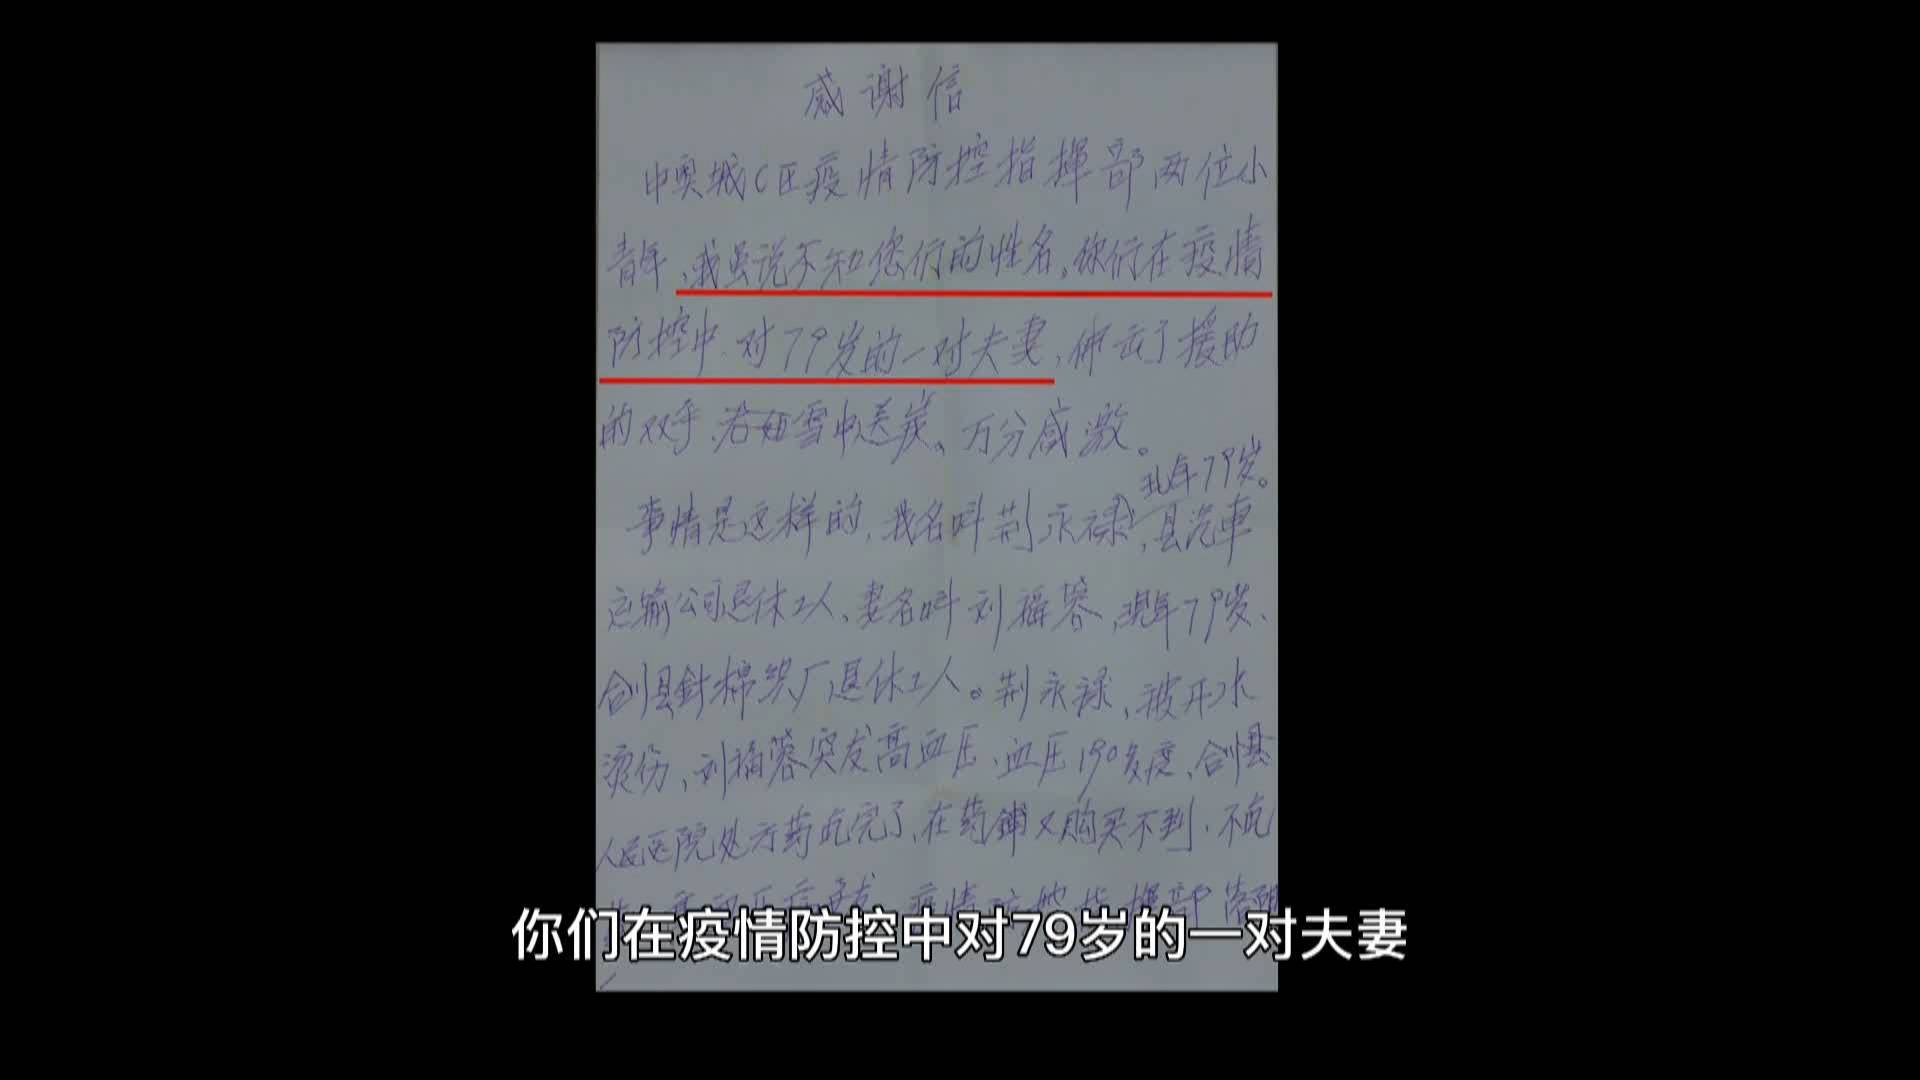 感谢信
中奥城C区疫情防控指揮部两位小
青年,我虽说不知您们的姓名,你们在疫情
防控中,对79岁的一对夫妻,伸出了援助
的双手,若如雪中送炭。万分感激。
现年79岁。
事情是这样的,我名叫荆永禄,县汽車
运输公司退休工人,妻名叫刘福蓉,現年79岁、
县針棉织厂退休工人。荆永禄,被开水
烫伤,刘福蓉突发高血压,血压190多度,县
人民医院处方药吃完了,在药鋪又购买不到,不吃
疫情防控指揮部
你们在疫情防控中对79岁的一对夫妻